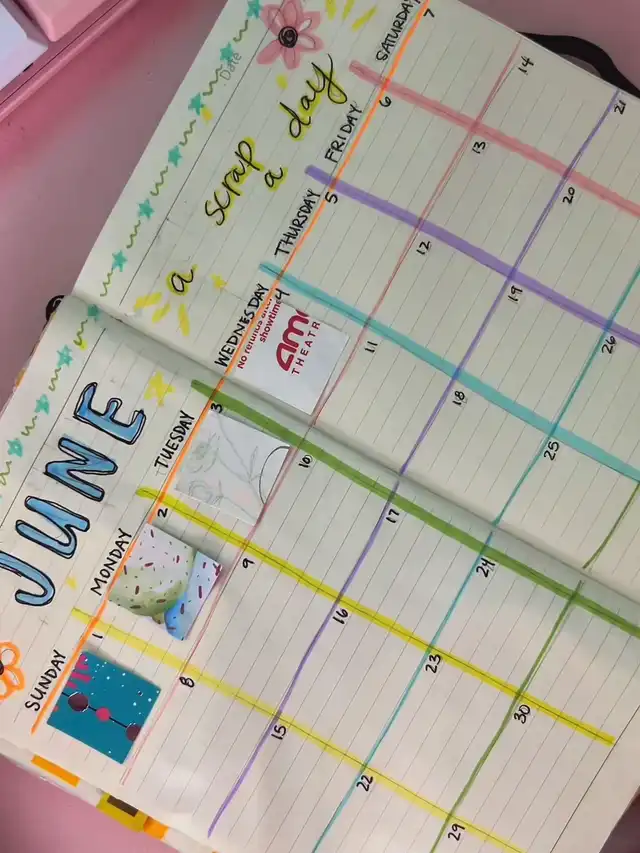 Date
JUNE a scrap a day
SUNDAY MONDAY TUESDAY WEDNESDAY THURSDAY FRIDAY SATURDAY
1 2 3 4 5 6 7
No refunds after
showtime
amc
THEATR
8 9 10 11 12 13 14
15 16 17 18 19 20 21
22 23 24 25 26
29 30